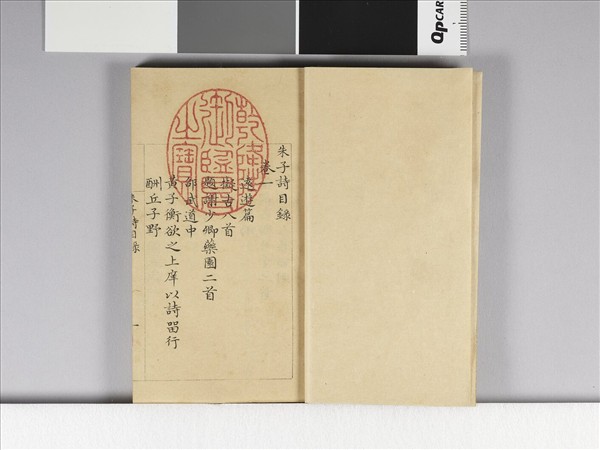 朱子詩目錄
卷一
遠遊篇
擬古八首
題謝少卿藥園二首
邵武道中
黃子衡欲之上庠以詩畱行
酬丘子野
朱子詩目錄
一
乾隆御覽之寶
QpCARD